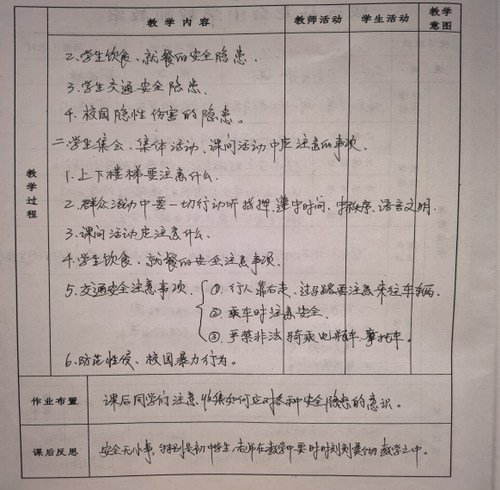 教学内容 教师活动 学生活动 教学意图
2.学生饮食、就餐的安全隐患.
3.学生交通安全隐患.
4.校园隐性伤害的隐患。
二.学生集会、集体活动、课间活动中应注意的事项.
教学过程
1.上下楼梯要注意什么.
2.群众活动中要一切行动听指挥,遵守时间,守秩序、语言文明.
3.课间活动应注意什么.
4.学生饮食、就餐的安全注意事项.
5.交通安全注意事项. ①.行人靠右走、过马路要注意来往车辆.
②.乘车时注意安全.
③.严禁非法骑乘电瓶车、摩托车。
6.防范性侵、校园暴力行为。
作业布置 课后同学们注意收集如何应对各种安全隐患的意识。
课后反思 安全无小事,特别是初中学生,老师在教学中要时时刻刻教学之中.